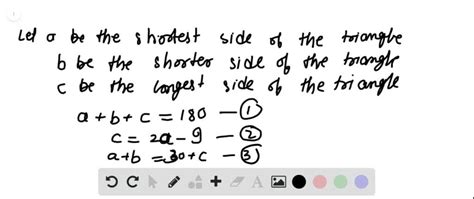 Let a be the shortest side of the triangle
b be the shorter side of the triangle
c be the longest side of the triangle
a+b+c = 180 — ①
c = 2a - 9 — ②
a+b = 30+c — ③